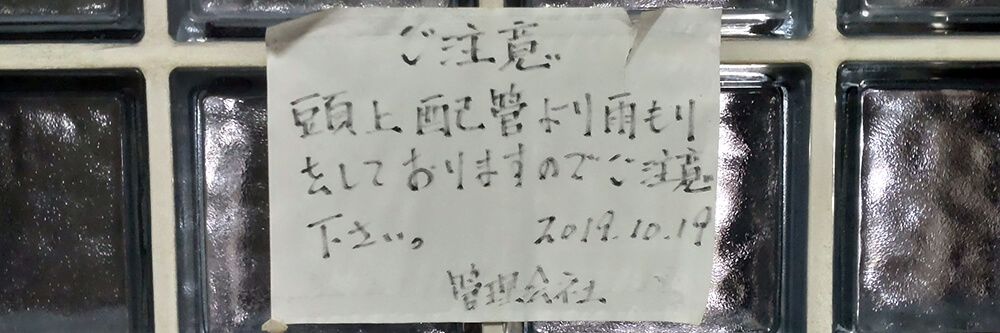 ご注意
頭上配管より雨もり
をしておりますのでご注意
下さい。 2019.10.19
管理会社